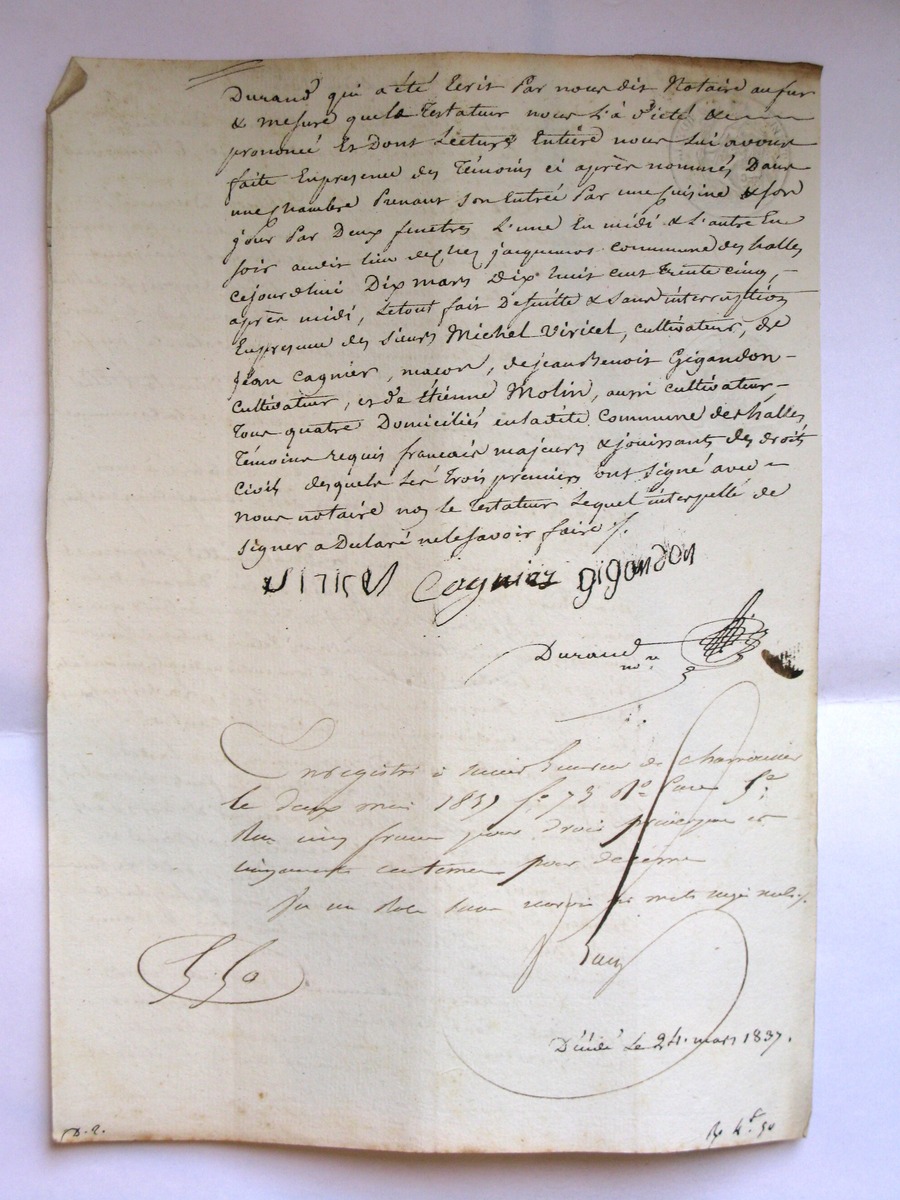 Durand qui a été Ecrit Par nous dit Notaire au fur
& mesure que le Testateur nous l'a dicté &
prononcé Et Dont Lecture Entière nous lui avons
faite En presence des Témoins ci après nommés Dans
une chambre Prenant son Entrée Par une cuisine & son
jour Par Deux fenêtres L'une En midi & L'autre En
soir audit lieu de chez jacquemot commune des halles
cejourdhui Dix mars Dix huit cent trente cinq,
après midi, Le tout fait De suitte & sans interruption
En presence des sieurs Michel Viricel, cultivateur, de
Jean Cagnier, maçon, de jean Benoit Gigandon
Cultivateur, et de Etienne Molin, aussi cultivateur
Tous quatre Domiciliés en ladite commune des halles
Témoins requis francais majeurs & jouissants des droits
civils desquels Les Trois premiers ont signé avec
nous notaire non le Testateur Lequel interpellé de
signer a Déclaré ne le savoir faire ./.
VIRICEL Cagnier gigandon
Durand
no re
Enregistré à
le deux mai 1837 fo 73 Ro
cinq francs pour droit principal et
cinquante centimes pour décime
Décédé Le 24. mars 1837.
D. 2.